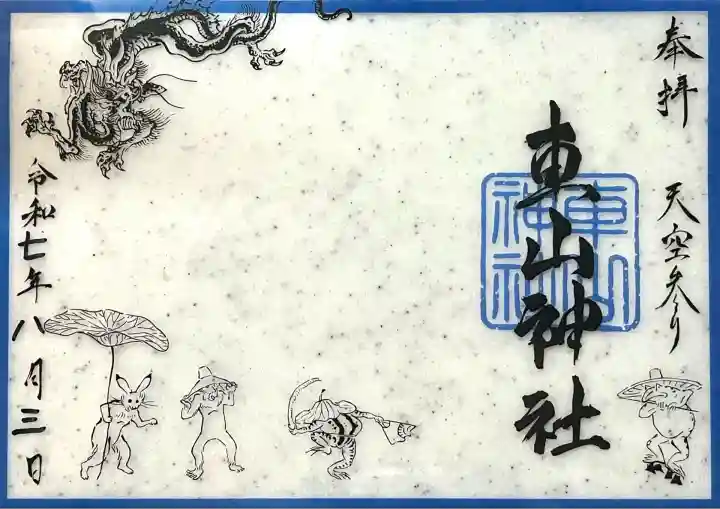 奉拝
天空参り
車山神社
車山
神社
令和七年八月三日